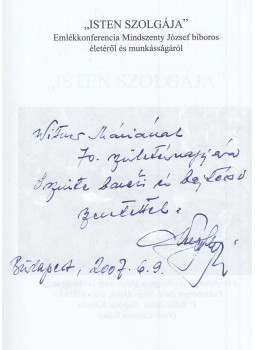 „ISTEN SZOLGÁJA”
Emlékkonferencia Mindszenty József bíboros
életéről és munkásságáról
Witner Máriának
70. születésnapjára
Őszinte baráti és
szeretettel.
Budapest, 2007. 6. 9.